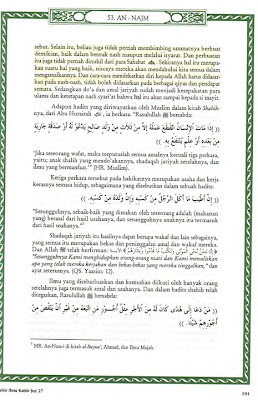 53. AN - NAJM
sebut. Selain itu, beliau juga tidak pernah membimbing ummatnya berbuat
demikian, baik dalam bentuk nash maupun melalui isyarat. Dan perbuatan
itu juga tidak pernah dinukil dari para Sahabat. Sekiranya hal itu merupa-
kan suatu hal yang baik, niscaya mereka akan mendahului kita semua dalam
mengamalkannya. Dan cara-cara mendekatkan diri kepada Allah harus didasar-
kan pada nash-nash, tidak boleh didasarkan pada berbagai qiyas dan pendapat
semata. Sedangkan do'a dan amal jariyah sudah menjadi kesepakatan para
ulama dan ketetapan nash syari'at bahwa hal itu akan sampai kepada si mayit.
Adapun hadits yang diriwayatkan oleh Muslim dalam kitab Shahih-
nya, dari Abu Hurairah, ia berkata: "Rasulullah bersabda:
(( إِذَا مَاتَ الْإِنْسَانُ انْقَطَعَ عَمَلُهُ إِلاَّ مِنْ ثَلاَثٍ مِنْ وَلَدٍ صَالِحٍ يَدْعُوْ لَهُ أَوْ صَدَقَةٍ جَارِيَةٍ
مِنْ بَعْدِهِ أَوْ عِلْمٍ يُنْتَفَعُ بِهِ. ))
'Jika seseorang wafat, maka terputuslah semua amalnya kecuali tiga perkara,
yaitu; anak shalih yang mendo'akannya, shadaqah jariyah setelahnya, dan
ilmu yang bermanfaat.'" (HR. Muslim).
Ketiga perkara tersebut pada hakikatnya merupakan usaha dan kerja
kerasnya semasa hidup, sebagaimana yang disebutkan dalam sebuah hadits:
(( إِنَّ أَطْيَبَ مَا أَكَلَ الرَّجُلُ مِنْ كَسْبِهِ، وَإِنَّ وَلَدَهُ مِنْ كَسْبِهِ. ))
"Sesungguhnya, sebaik-baik yang dimakan oleh seseorang adalah (makanan)
yang berasal dari hasil usahanya, dan sesungguhnya anaknya itu termasuk
dari hasil usahanya."
Shadaqah jariyah itu hasilnya dapat berupa wakaf dan lain sebagainya,
yang semua itu merupakan bekas dari peninggalan amal dan wakaf mereka.
Dan Allah telah berfirman:
"Sesungguhnya Kami menghidupkan orang-orang mati dan Kami menuliskan
apa yang telah mereka kerjakan dan bekas-bekas yang mereka tinggalkan," dan
ayat seterusnya. (QS. Yaasiin: 12).
Ilmu yang disebarluaskan dan kemudian diikuti oleh banyak orang
setelahnya juga termasuk usaha dan amalnya. Dan dalam hadits shahih telah
ditegaskan, Rasulullah bersabda:
(( مَنْ دَعَا إِلَى هُدًى كَانَ لَهُ مِنَ الْأَجْرِ مِثْلُ أُجُوْرِ مَنِ اتَّبَعَهُ مِنْ غَيْرِ أَنْ يَنْقُصَ مِنْ
أُجُوْرِهِمْ شَيْئًا. ))
HR. An-Nasa-i di kitab al-Buyuu', Ahmad, dan Ibnu Majah.
Ibnu Katsir Juz 27